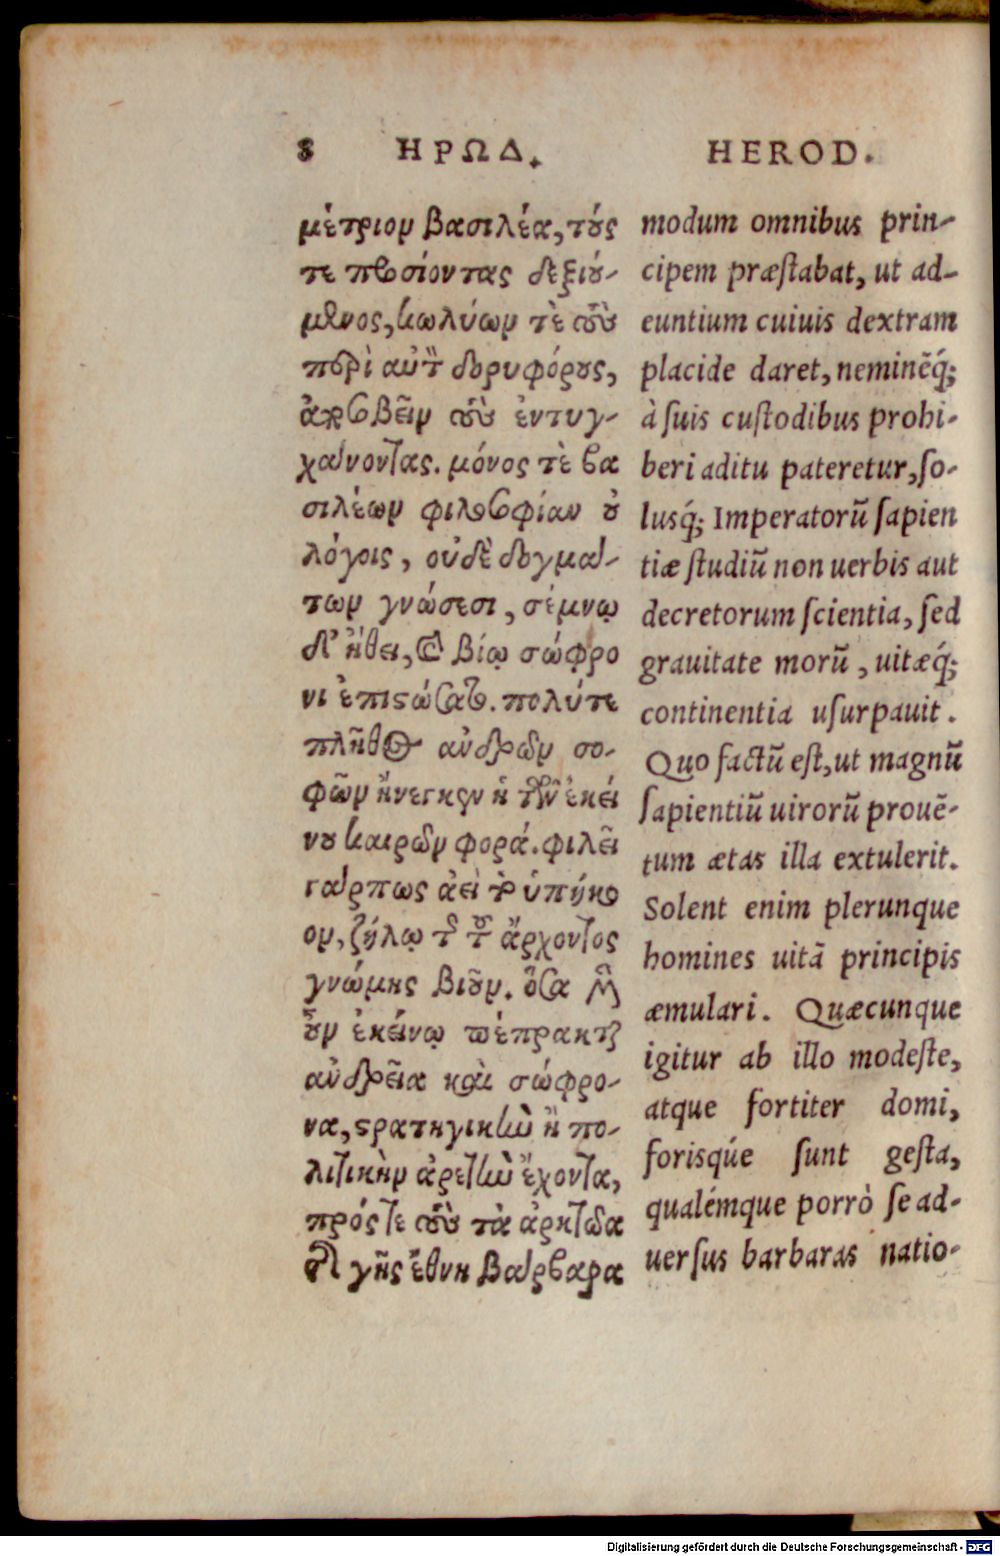 8 ΗΡΩΔ. HEROD.
μέτριον βασιλέα, τούς
τε προσίοντας δεξιού-
μενος, κωλύων τὲ τοὺς
περὶ αὐτὸν δορυφόρους,
ἀποσοβεῖν τοὺς ἐντυγ-
χάνοντας. μόνος τὲ βα
σιλέων φιλοσοφίαν οὐ
λόγοις, οὐδὲ δογμά-
των γνώσεσι, σέμνῳ
δ' ἤθει, καὶ βίῳ σώφρο
νι ἐπιστώσατο. πολύ τε
πλῆθος ἀνδρῶν σο-
φῶν ἤνεγκεν ἡ τῶν ἐκεί
νου καιρῶν φορά. φιλεῖ
γάρ πως ἀεὶ τὸ ὑπήκο
ον, ζήλῳ τῆς τοῦ ἄρχοντος
γνώμης βιοῦν. ὅσα μὲν
οὖν ἐκείνῳ πέπρακται
ἀνδρεῖα καὶ σώφρο-
να, στρατηγικὴν ἢ πο-
λιτικὴν ἀρετὴν ἔχοντα,
πρός τε τοὺς τὰ ἀρκτῶα
τῆς γῆς ἔθνη βάρβαρα
modum omnibus prin-
cipem præstabat, ut ad-
euntium cuiuis dextram
placide daret, neminẽq́;
à suis custodibus prohi-
beri aditu pateretur, so-
lusq́; Imperatorũ sapien
tiæ studiũ non uerbis aut
decretorum scientia, sed
grauitate morũ, uitæq́;
continentia usurpauit.
Quo factũ est, ut magnũ
sapientiũ uirorũ prouẽ-
tum ætas illa extulerit.
Solent enim plerunque
homines uitã principis
æmulari. Quæcunque
igitur ab illo modeste,
atque fortiter domi,
forisqúe sunt gesta,
qualémque porrò se ad-
uersus barbaras natio-
Digitalisierung gefördert durch die Deutsche Forschungsgemeinschaft - DFG